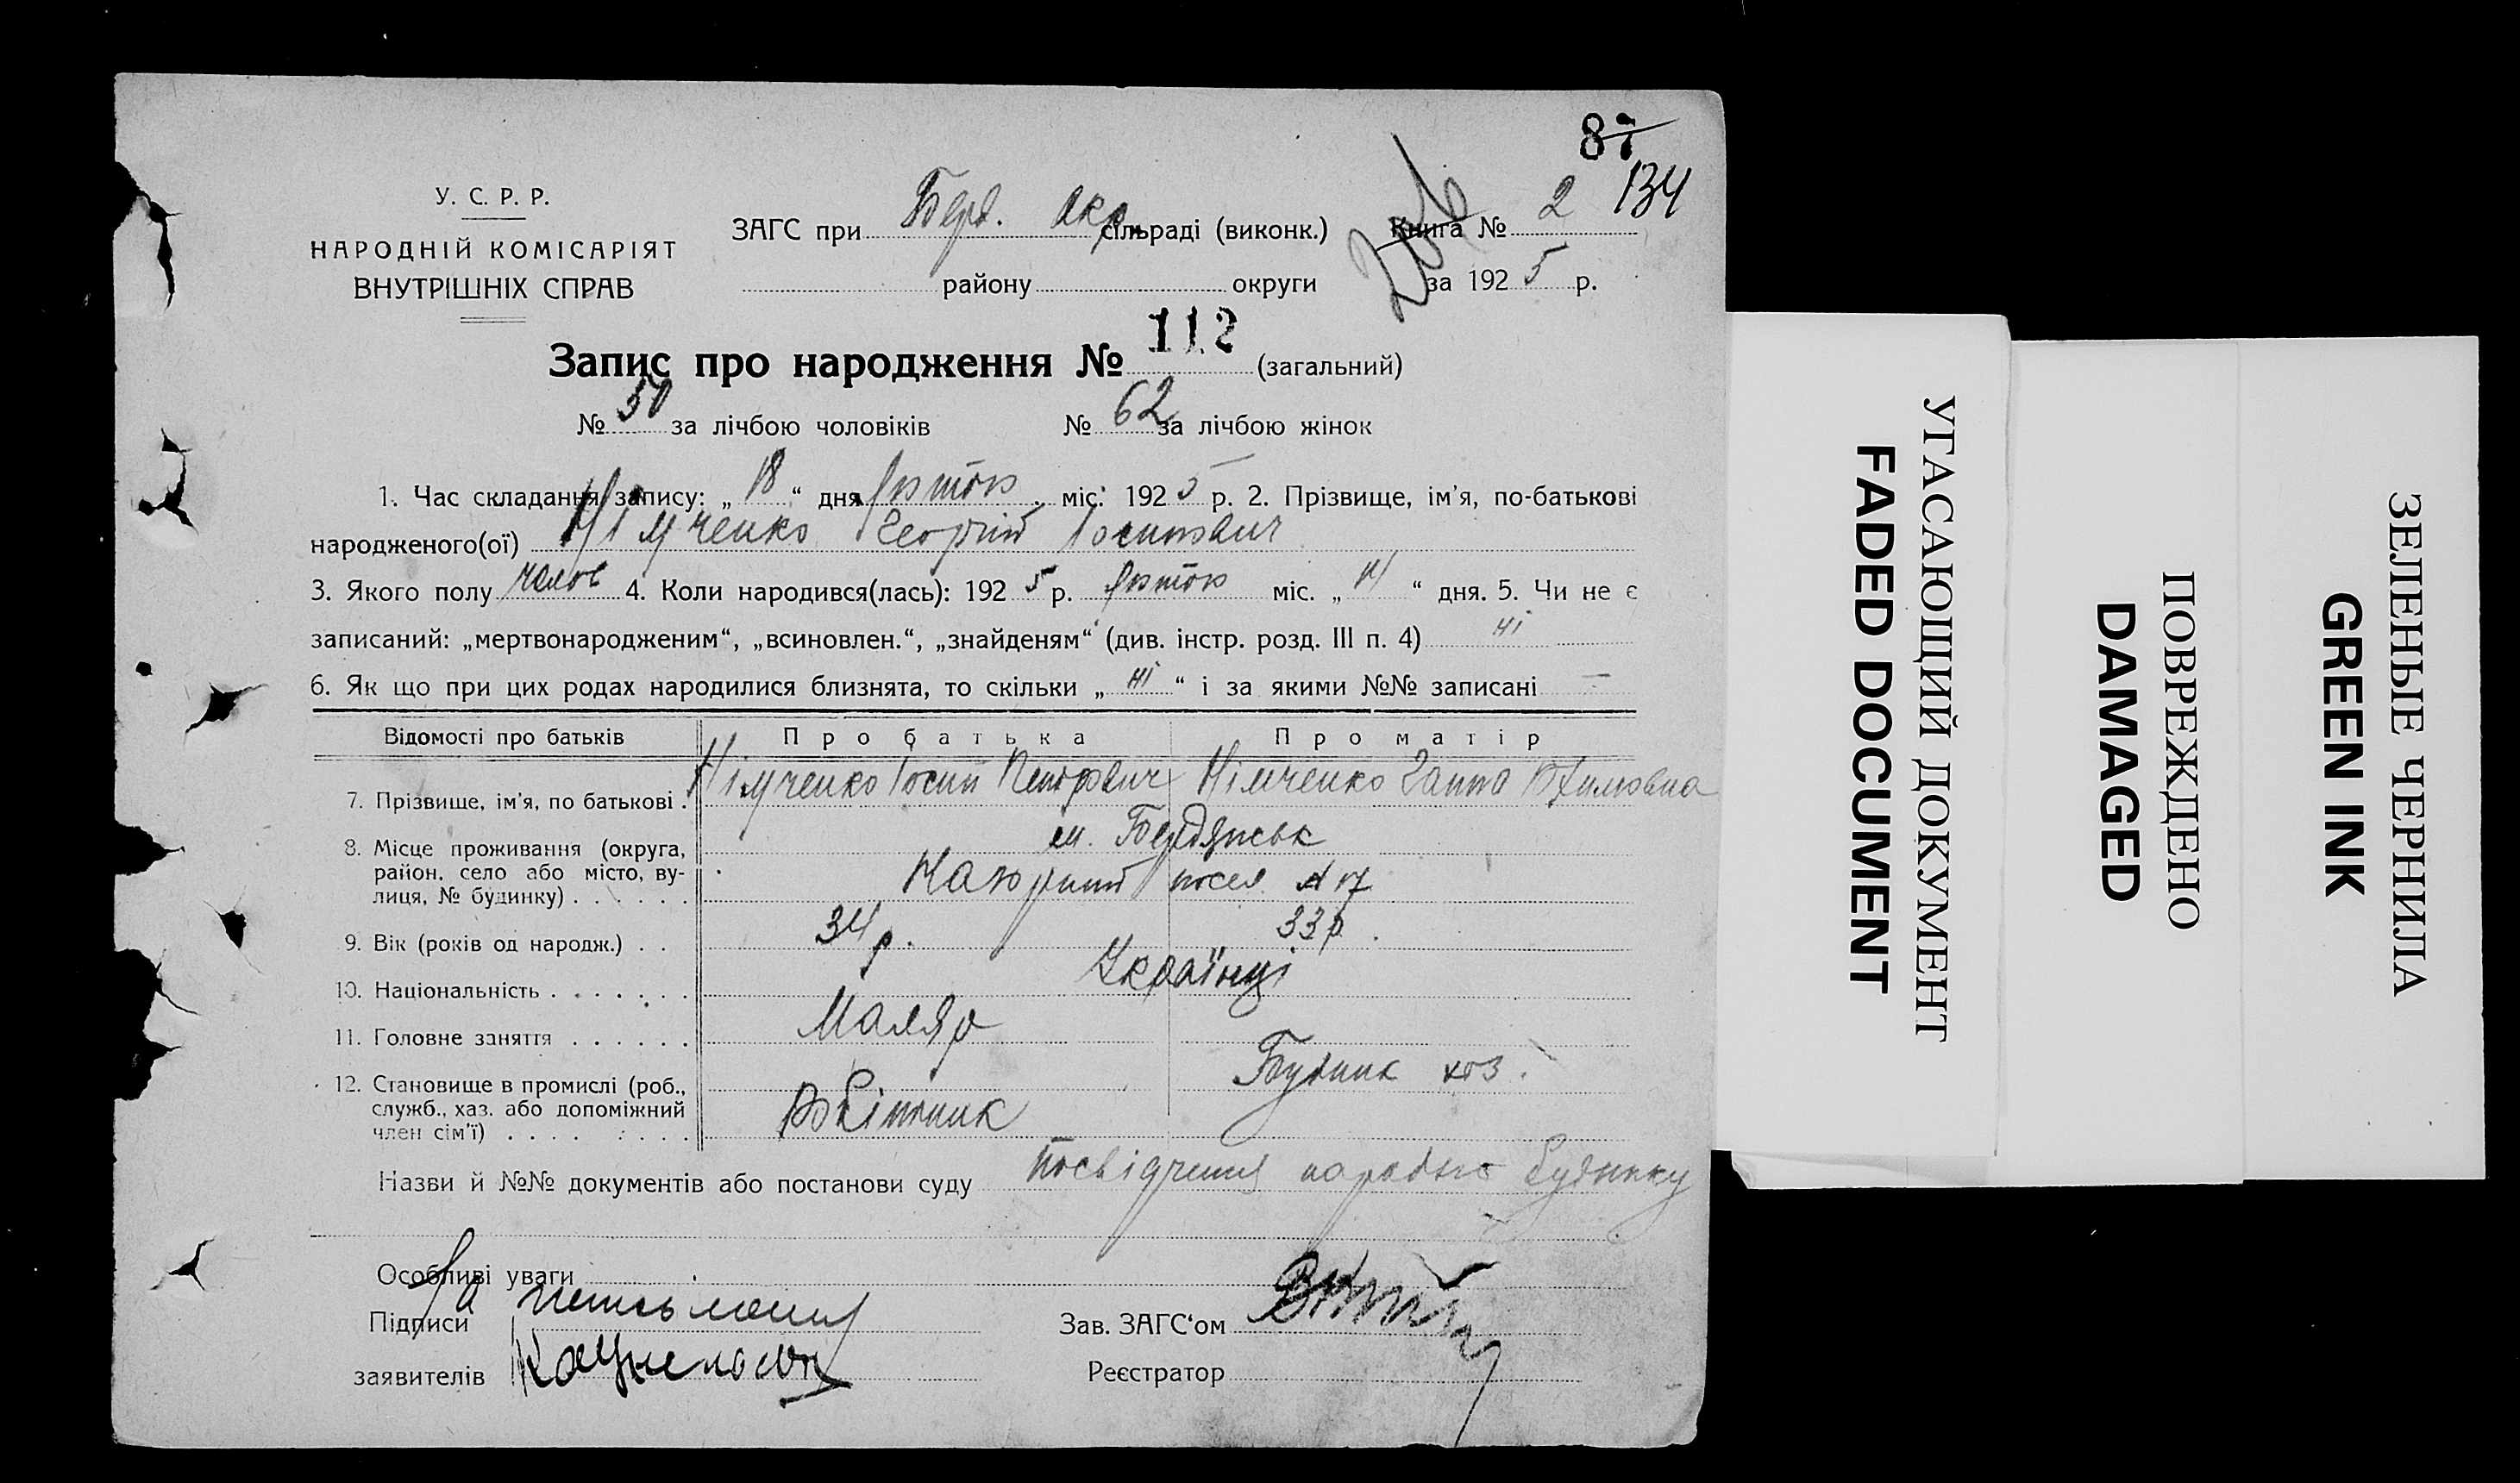 87
134
У. С. Р. Р.
НАРОДНІЙ КОМІСАРІЯТ
ВНУТРІШНІХ СПРАВ
ЗАГС при Берд. окр. сільраді (виконк.) Книга № 2
району округи за 1925 р.
Запис про народження № 112 (загальний)
№ 50 за лічбою чоловіків № 62 за лічбою жінок
1. Час складання запису: „18“ дня міс. 1925 р. 2. Прізвище, ім'я, по-батькові
народженого(ої) Німченко Георгій Іосипович
3. Якого полу чолов 4. Коли народився(лась): 1925 р. міс. „ “ дня. 5. Чи не є
записаний: „мертвонародженим“, „всиновлен.“, „знайденям“ (див. інстр. розд. III п. 4) ні
6. Як що при цих родах народилися близнята, то скільки „ні“ і за якими №№ записані —
Відомості про батьків Про батька Про матір
7. Прізвище, ім'я, по батькові . Німченко Іосип Петрович Німченко Ганна
8. Місце проживання (округа, м. Бердянськ
район, село або місто, ву-
лиця, № будинку) . . . . . . посел. № 17
9. Вік (років од народж.) . . 34 р. 33 р.
10. Національність . . . . . . . Українці
11. Головне заняття . . . . . . Маляр
12. Становище в промислі (роб., Робітник Будинк хоз.
служб., хаз. або допоміжний
член сім'ї) . . . . . . . .
Назви й №№ документів або постанови суду Посвідчення будинку
Особливі уваги
Підписи
заявителів
Зав. ЗАГС'ом
Реєстратор
УГАСАЮЩИЙ ДОКУМЕНТ
FADED DOCUMENT
ПОВРЕЖДЕНО
DAMAGED
ЗЕЛЕНЫЕ ЧЕРНИЛА
GREEN INK